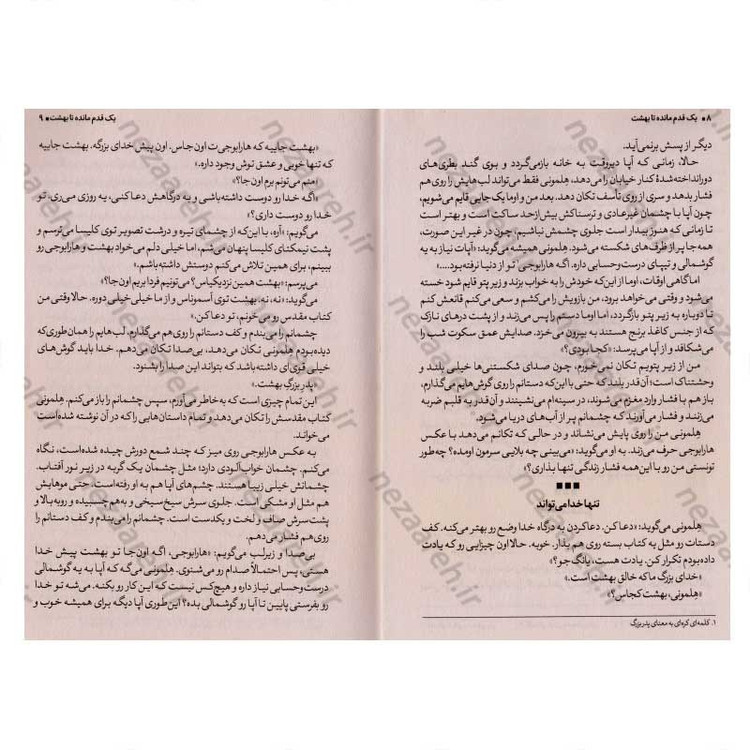 ۸ ■ یک قدم مانده تا بهشت
دیگر از پسش برنمی‌آید.
حالا، زمانی که آپا دیروقت به خانه بازمی‌گردد و بوی گند بطری‌های
دورانداخته‌شدهٔ کنار خیابان را می‌دهد، هلمونی فقط می‌تواند لب‌هایش را روی هم
فشار بدهد و سری از روی تأسف تکان دهد. بعد من و اوما یک جایی قایم می‌شویم،
چون آپا با چشمان غیرعادی و ترسناکش بیش‌ازحد ساکت است و بهتر است
تا زمانی که هنوز بیدار است جلوی چشمش نباشیم، چون در غیر این صورت،
همه‌جا پر از ظرف‌های شکسته می‌شود. هلمونی همیشه می‌گوید: «آپات نیاز به یه
گوشمالی و تیپای درست‌وحسابی داره. اگه هارابوجی۱ تو از دنیا نرفته بود....»
اما گاهی اوقات، اوما از این‌که خودش را به خواب بزند و زیر پتو قایم شود خسته
می‌شود و وقتی می‌خواهد برود، من بازویش را می‌کشم و سعی می‌کنم قانعش کنم
تا دوباره به زیر پتو بازگردد، اما اوما دستم را پس می‌زند و از پشت درهای نازک
که از جنس کاغذ برنج هستند به بیرون می‌خزد. صدایش عمق سکوت شب را
می‌شکافد و از آپا می‌پرسد: «کجا بودی؟»
من از زیر پتویم تکان نمی‌خورم، چون صدای شکستنی‌ها خیلی بلند و
وحشتناک است؛ آن‌قدر بلند که حتی با این‌که دستانم را روی گوش‌هایم می‌گذارم،
باز هم با فشار وارد مغزم می‌شوند، در سینه‌ام می‌نشینند و آن‌قدر به قلبم ضربه
می‌زنند و فشار می‌آورند که چشمانم پر از آب‌های دریا می‌شود.
هلمونی من را روی پایش می‌نشاند و در حالی که تکانم می‌دهد با عکس
هارابوجی حرف می‌زند. به او می‌گوید: «می‌بینی چه بلایی سرمون اومده؟ چه‌طور
تونستی من رو با این‌همه فشار زندگی تنها بذاری؟»
■■■
تنها خدا می‌تواند
هلمونی می‌گوید: «دعا کن. دعا کردن به درگاه خدا وضع رو بهتر می‌کنه. کف
دستات رو مثل یه کتاب بسته روی هم بذار. خوبه. حالا اون چیزایی رو که یادت
داده‌بودم تکرار کن. یادت هست، یانگ جو؟»
«خدای بزرگ ما که خالق بهشت است.»
«هلمونی، بهشت کجاس؟»
۱. کلمه‌ای کره‌ای به معنای پدربزرگ
یک قدم مانده تا بهشت ■ ۹
«بهشت جاییه که هارابوجی‌ت اون جاس. اون پیش خدای بزرگه. بهشت جاییه
که تنها خوبی و عشق توش وجود داره.»
«منم می‌تونم برم اون‌جا؟»
«اگـه خـدا رو دوست داشته‌باشی و به درگاهش دعا کنی، یه روزی می‌ری. تو
خدا رو دوست داری؟»
می‌گویم: «آره، با این‌که از چشمای تیره و درشت تصویر توی کلیسا می‌ترسم و
پشت نیمکتای کلیسا پنهان می‌شم، اما خیلی دلم می‌خواد بهشت و هارابوجی رو
ببینم، برای همین تلاش می‌کنم دوستش داشته‌باشم.»
می‌پرسم: «بهشت همین نزدیکیاس؟ می‌تونیم فردا بریم اون‌جا؟»
می‌گوید: «نه، نه. بهشت توی آسموناس و از ما خیلی خیلی دوره. حالا وقتی من
کتاب مقدس رو می‌خونم، تو دعا کن.»
چشمانم را می‌بندم و کف دستانم را روی هم می‌گذارم. لب‌هایم را همان‌طوری که
دیده‌بودم هلمونی تکان می‌دهد، بی‌صدا تکان می‌دهم. خدا باید گوش‌های
خیلی قوی‌ای داشته باشد که بتواند این صدا را بشنود.
«پدر بزرگ بهشت.»
این تمام چیزی است که به‌خاطر می‌آورم. سپس چشمانم را باز می‌کنم. هلمونی
کتاب مقدسش را تکان می‌دهد و تمام داستان‌هایی را که در آن نوشته شده‌است
می‌خواند.
بـه عکـس هارابوجی روی میز که چند شمع دورش چیده شده‌است، نگاه
می‌کنم. چشمان خواب‌آلودی دارد؛ مثل چشمان یک گربه در زیر نور آفتاب.
چشمانش خیلی زیبا هستند. چشم‌های آپا هم به او رفته‌است. حتی موهایش
هم مثل او مشکی است. جلوی سرش سیخ‌سیخی و به‌هم‌چسبیده و رو به بالا و
پشت سرش صاف و لخت و یکدست است. چشمانم را می‌بندم و کف دستانم را
روی هم فشار می‌دهم.
بی‌صدا و زیرلب می‌گویم: «هارابوجی، اگـه اون‌جا تو بهشت پیش خدا
هستی، پس احتمالاً صدام رو می‌شنوی. هلمونی می‌گه که آپا به یه گوشمالی
درست‌وحسابی نیاز داره و هیچ‌کس نیست که این کار رو بکنه. می‌شه تو خدا
رو بفرستی پایین تا آپا رو گوشمالی بده؟ این‌طوری آپا دیگه برای همیشه خوب و
nezaareh.ir